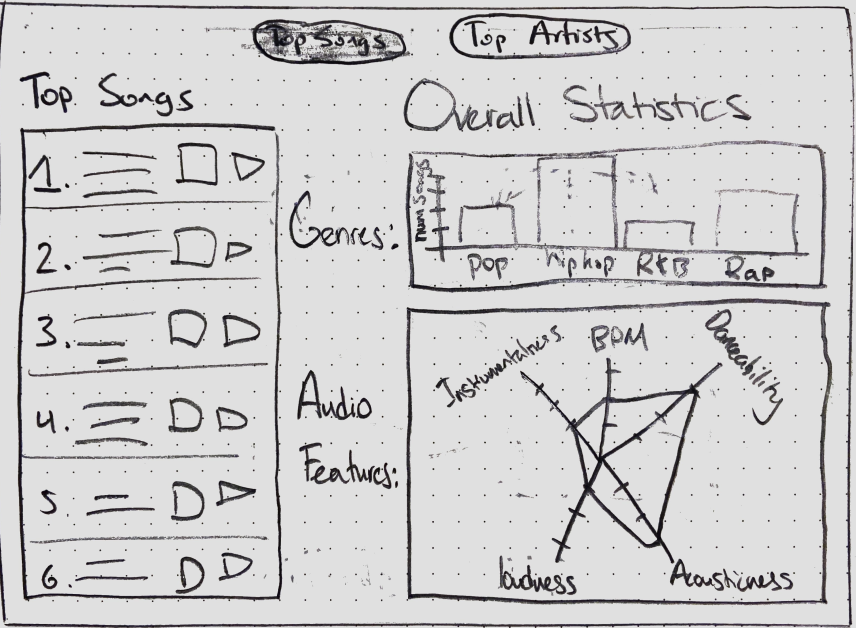 Top Songs
Top Artists
Top Songs
1.
2.
3.
4.
5
6.
Overall Statistics
Genres:
Num Songs
pop
hiphop
R&B
Rap
Audio
Features:
Instrumentalness
BPM
Danceability
loudness
Acousticness